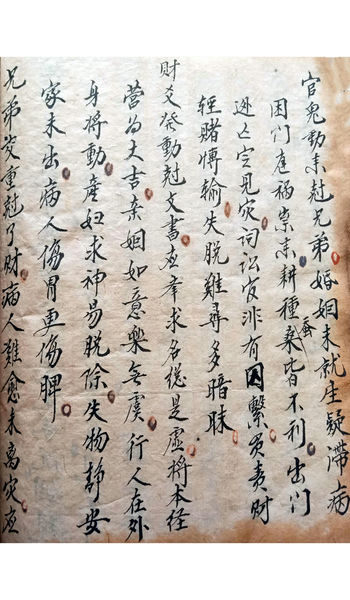 官鬼動来尅兄弟婚姻未就生疑滯病
困门庭禍祟来耕種蚕桑皆不利出门
逃亡定見灾词讼官非有囚繫買賣財
轻賭博輸失脱難尋多暗昧
財爻發動尅文書应举求名總是虚将本経
营为大吉亲姻如意樂無虞行人在外
身将動産妇求神易脱除失物静安
家未出病人傷胃更傷脾
兄弟交重尅了財病人難愈未离灾应